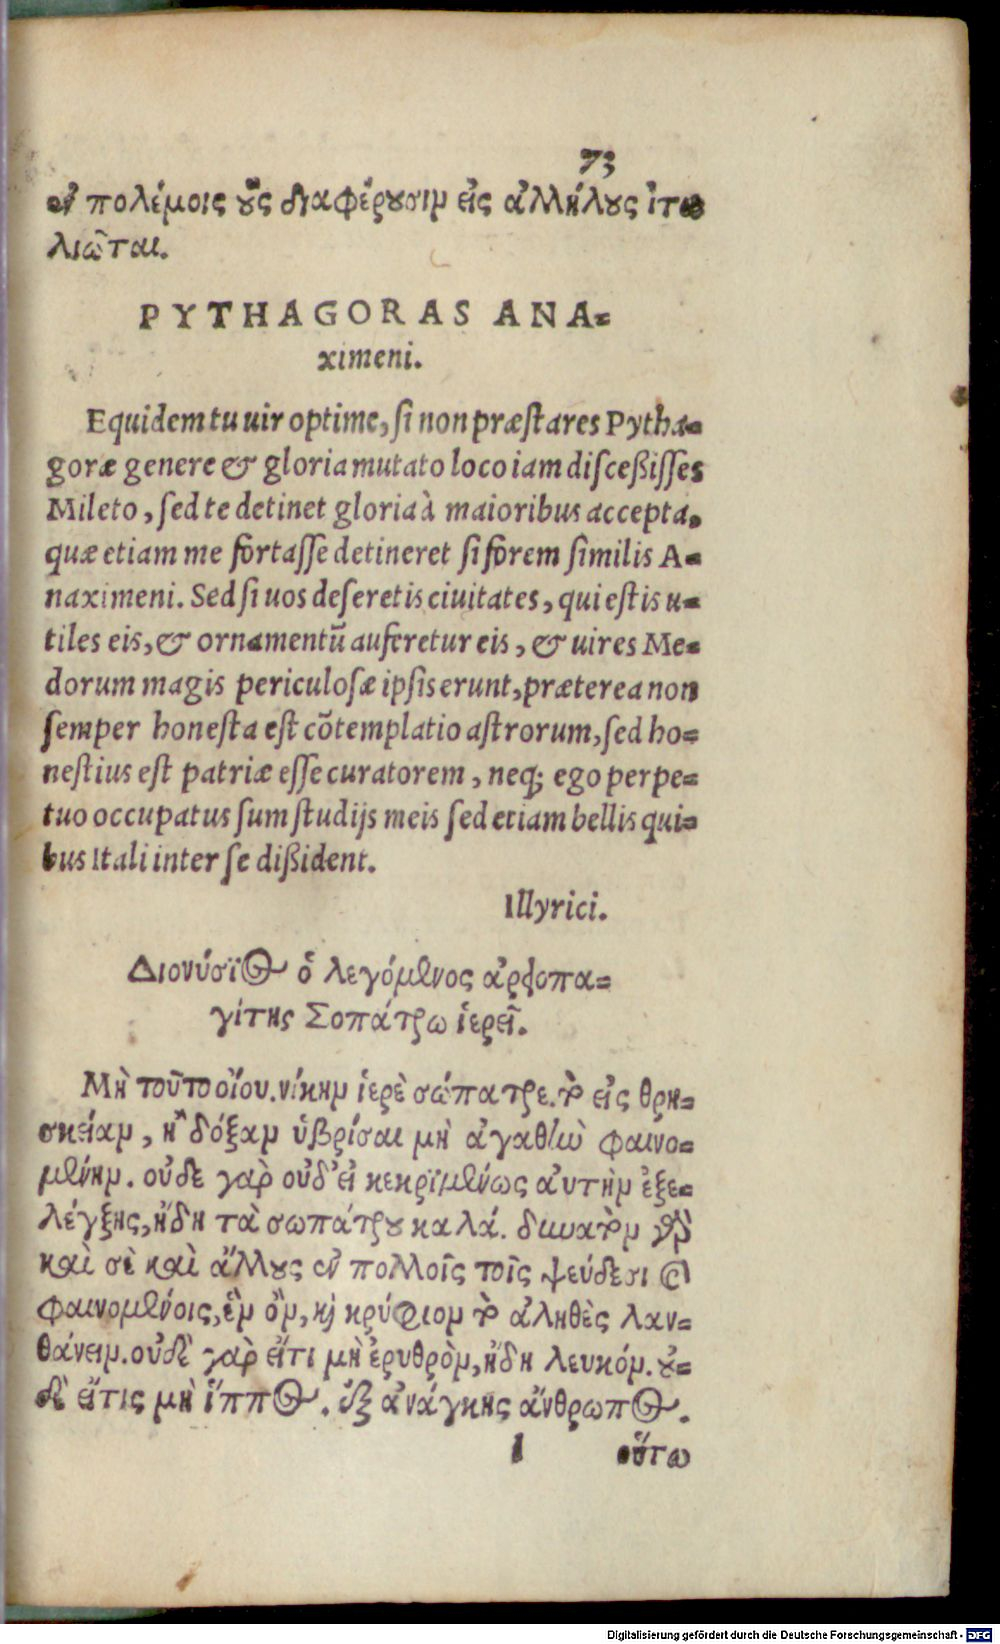 73
ἐν πολέμοις οὓς διαφέρουσιν εἰς ἀλλήλους ἰτα
λιῶται.
PYTHAGORAS ANA=
ximeni.
Equidem tu uir optime, si non præstares Pytha=
goræ genere & gloria mutato loco iam discessisses
Mileto, sed te detinet gloria à maioribus accepta,
quæ etiam me fortasse detineret si forem similis A=
naximeni. Sed si uos deseretis ciuitates, qui estis u=
tiles eis, & ornamentũ auferetur eis, & uires Me=
dorum magis periculosæ ipsis erunt, præterea non
semper honesta est cõtemplatio astrorum, sed ho=
nestius est patriæ esse curatorem, neq; ego perpe=
tuo occupatus sum studijs meis sed etiam bellis qui=
bus Itali inter se dissident.
Illyrici.
Διονύσϊος ὁ λεγόμενος ἀρεοπα=
γίτης Σοπάτρω ἱερεῖ.
Μὴ τοῦτο οἴου. νίκην ἱερὲ σώπατρε. τὸ εἰς θρη=
σκείαν, ἢ δόξαν ὑβρίσαι μὴ ἀγαθὴν φαινο=
μένην. οὐδε γὰρ οὐδ' εἰ κεκρϊμένως αὐτὴν ἐξε=
λέγξης, ἤδη τὰ σωπάτρου καλά. δυνατὸν γὰρ
καὶ σὲ καὶ ἄλλους ἐν πολλοῖς τοῖς ψεύδεσι καὶ
φαινομένοις, ἓν ὂν, καὶ κρύφιον τὸ ἀληθὲς λαν=
θάνειν. οὐδὲ γὰρ εἴτι μὴ ἐρυθρὸν, ἤδη λευκόν. ου=
δὲ εἴτις μὴ ἵππος. ἐξ ἀνάγκης ἄνθρωπος.
I οὕτω
Digitalisierung gefördert durch die Deutsche Forschungsgemeinschaft - DFG